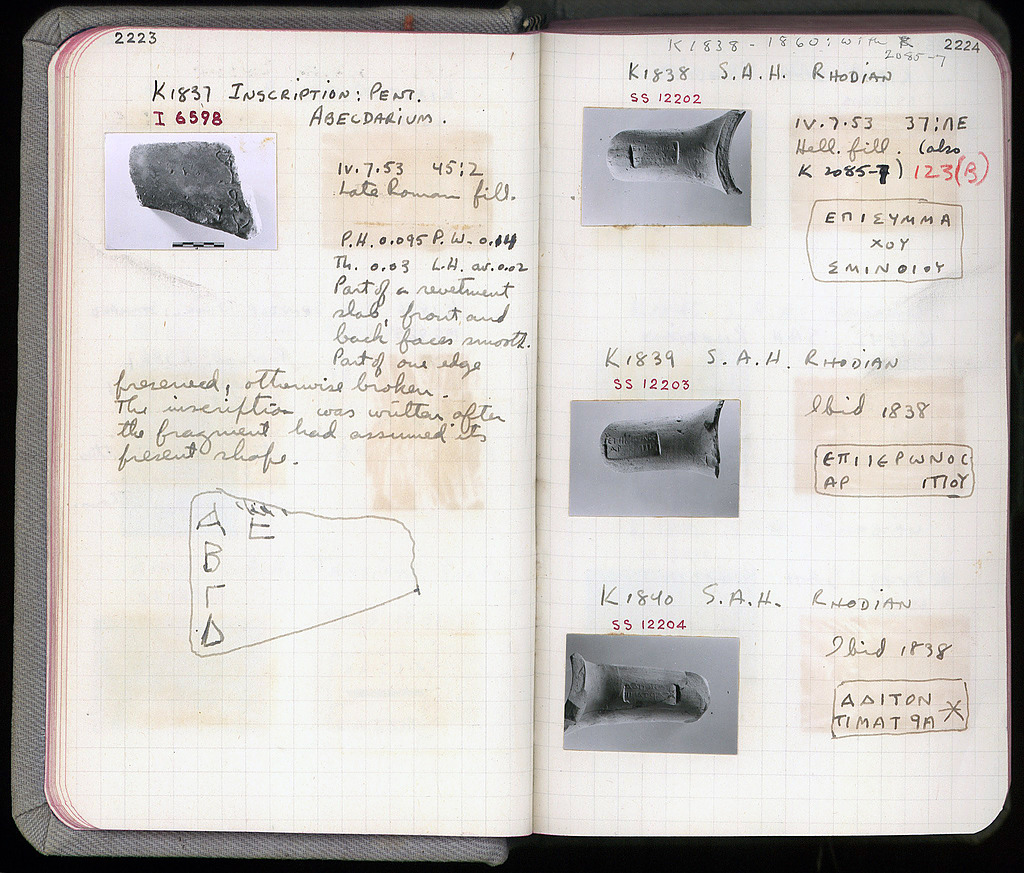 2223
K1837 INSCRIPTION: PENT.
I 6598 ABECDARIUM.
IV.7.53 45:Z
Late Roman fill.
P.H. 0.095 P.W. 0.14
Th. 0.03 L.H. av. 0.02
Part of a revetment
slab, front and
back faces smooth.
Part of one edge
preserved; otherwise broken.
The inscription was written after
the fragment had assumed its
present shape.
Α Ε
Β
Γ
Δ
K1838 - 1860: with
2085-7
2224
K1838 S.A.H. RHODIAN
SS 12202
IV.7.53 37:ΛΕ
Hell. fill. (also
K 2085-7) 123(B)
ΕΠΙΣΥΜΜΑ
ΧΟΥ
ΣΜΙΝΘΙΟΥ
K1839 S.A.H RHODIAN
SS 12203
Ibid 1838
ΕΠΙΙΕΡΩΝΟΣ
ΑΡ ΙΤΙΟΥ
K1840 S.A.H. RHODIAN
SS 12204
Ibid 1838
ΑΔΙΤΟΝ
ΤΙΜΑΤ